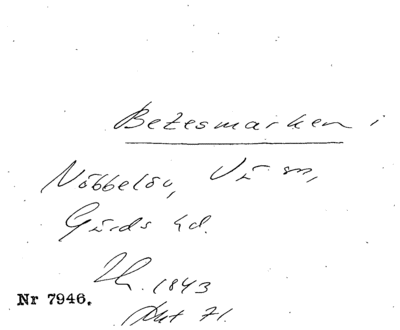 Betesmarken i
Nöbbelöv, V:a sn,
Gärds hd.
1843
Nr 7946.
Akt 71.